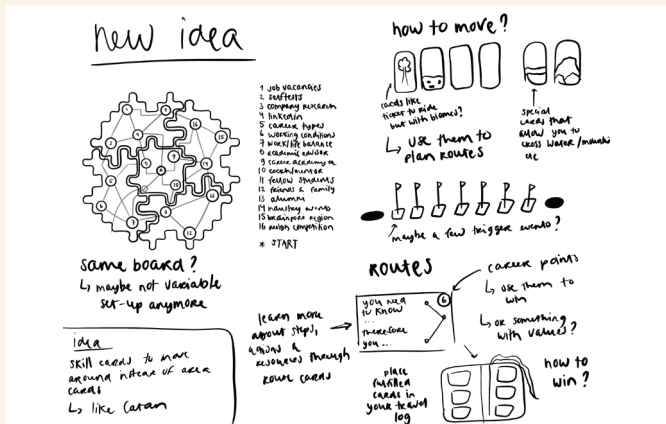 new idea
how to move?
1 job vacancies
2 selftests
3 company research
4 linkedin
5 career types
6 working conditions
7 work/life balance
8 academic advisor
9 career academy
10 coach/mentor
11 fellow students
12 friends & family
13 alumni
14 industry events
15 brainport region
16 competition
* START
same board?
↳ maybe not variable
set-up anymore
idea
skill cards to move
around instead of area
cards
↳ like Catan
cards like
ticket to ride
but with biomes?
↳ use them to
plan routes
special
cards that
allow you to
cross water/mountain
etc
maybe a few trigger events?
Routes
learn more
about steps,
actions &
resources through
route cards
you need
to know
...
therefore
you ...
6
career points
↳ use them to
win
↳ or something
with values?
place
fulfilled
cards in
your travel
log
how to
win?